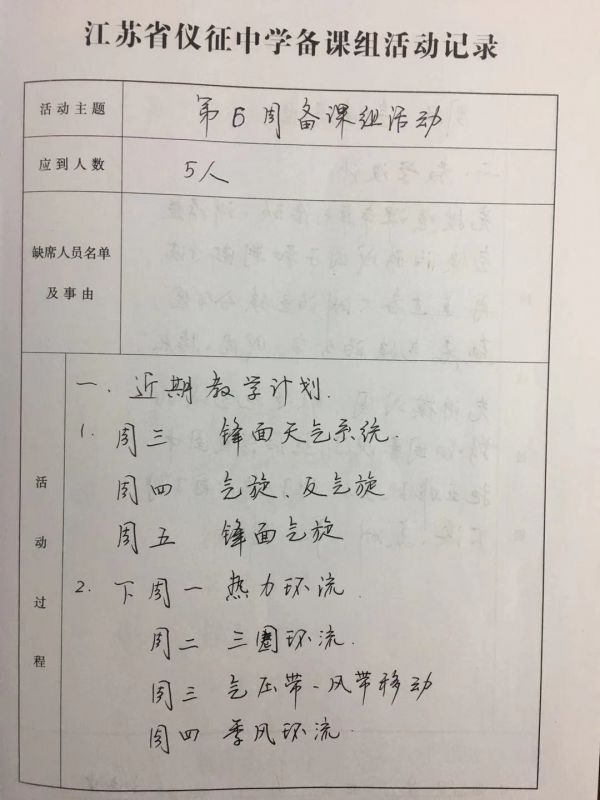 江苏省仪征中学备课组活动记录
活动主题 第6周备课组活动
应到人数 5人
缺席人员名单
及事由
活动过程
一、近期教学计划.
1. 周三 锋面天气系统.
周四 气旋、反气旋
周五 锋面气旋
2. 下周一 热力环流
周二 三圈环流.
周三 气压带、风带移动
周四 季风环流.